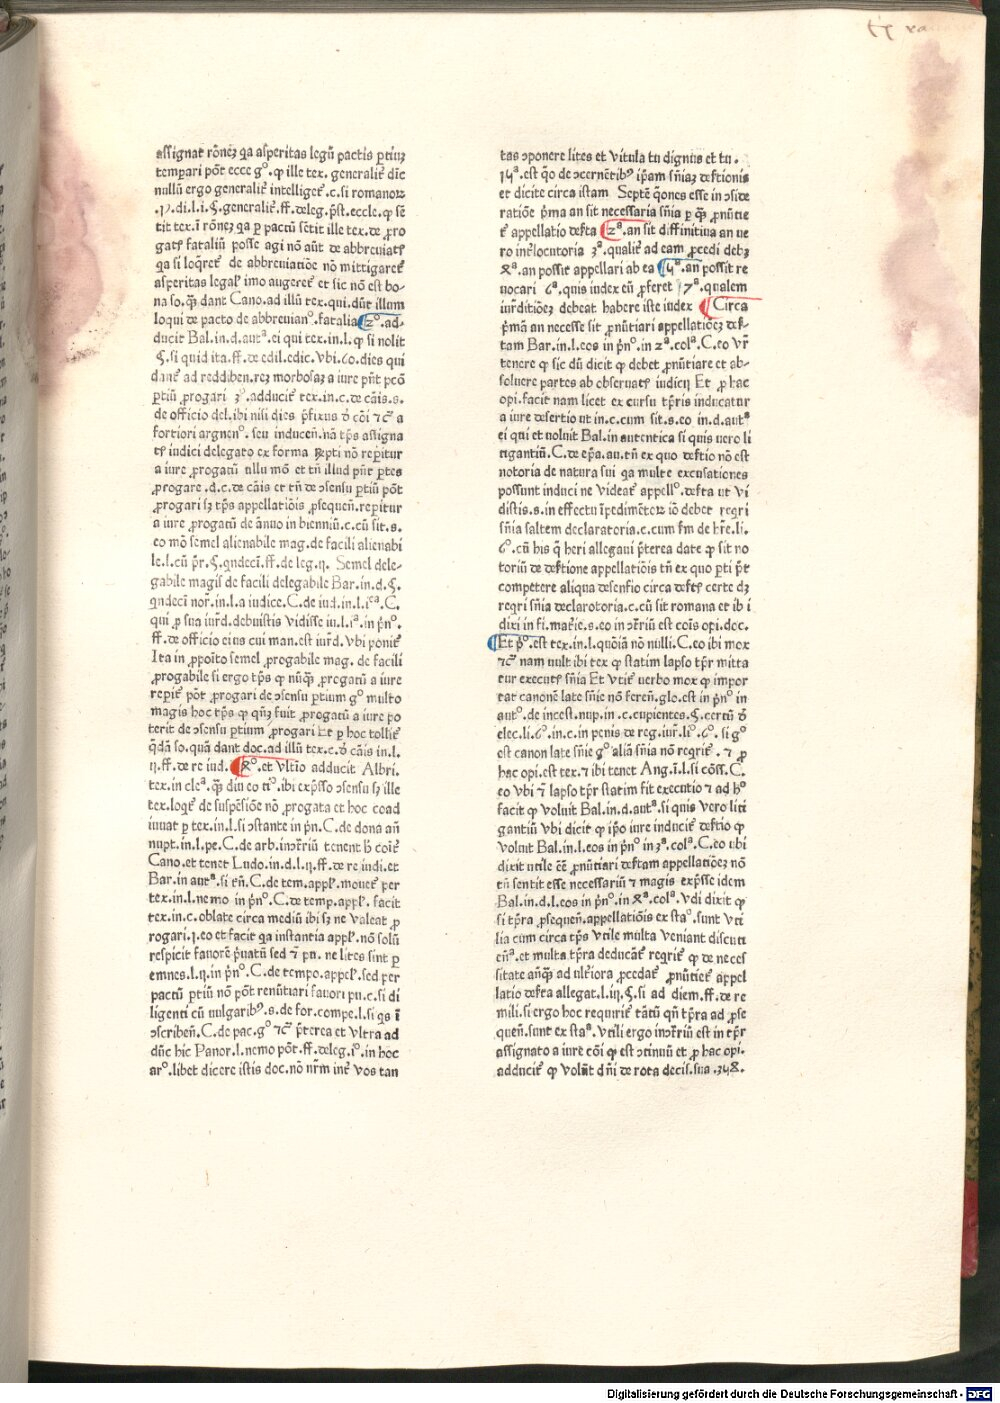 assignat rõnez qa asperitas legũ pactis ꝑtiũ
temꝑari põt ecce g°. ꝙ ille tex. generalit̃ dic̃
nullũ ergo generalit̃ intelliget̃.c.si romanoꝝ
generalit̃.ff.deleg.p̃st.eccle.ꝙ sẽ
tit tex.ĩ rõnez qa ꝑ pactũ sẽtit ille tex.de ꝓro
posse agi nõ aũt de
qa si loq̃ret̃ de abbreviatiõe nõ mittigaret̃
asperitas imo augeret̃ et sic nõ est bo-
na so.q̃ꝫ dant Cano.ad illũ tex.qui.dũt illum
loqui de pacto de abbreuian°.fatalia ¶2°.ad-
ducit Bal.in.d.autª.ei qui tex.in.l.ꝙ si nolit
§.si quid ita.ff.de edil.edic.vbi.60.dies qui
dant̃ ad reddiben.rez morbosaz a iure
ꝑtiũ ꝓrogari 3°.adducit̃ tex.in.c.de cãis.s.
de officio del.ibi nisi dies p̃fixus
fortiori seu tp̃s assigna
iudici delegato ex forma nõ reꝑitur
a iure ꝓrogatũ ullu mõ et tñ illud ꝑtes
ꝓrogare.d.c.de cãis et tñ de ↄsensu ꝑtiũ põt
ꝓrogari sꝫ tp̃s appellatiõis ꝓsequeñ.reꝑitur
a iure ꝓrogatũ de ãnuo in bienniũ.c.cũ sit.s.
eo mõ semel alienabile mag.de facili alienabi
le.l.cũ p̃r.§.qndecĩ.ff.de leg.ij. Semel dele-
gabile magis de facili delegabile Bar.in.d.§.
qndecĩ nor̃.in.l.a iudice.C.de iud.in.l.iᶜª.C.
qui ꝓ sua iur̃d.debuistis vidisse in.l.iª.in p̃n°.
ff.de officio eius cui man.est iur̃d.vbi ponit̃
Ita in semel ꝓrogabile mag. de facili
ꝓrogabile si ergo tp̃s ꝙ nũq̃ꝫ ꝓrogatũ a iure
reꝑit̃ põt ꝓrogari de ↄsensu ꝑtium g° multo
magis hoc tp̃s ꝙ qñꝫ fuit ꝓrogatũ a iure po
terit de ↄsensu ꝑtium ꝓrogari Et ꝑ hoc tollit̃
q̃dã so.quã dant doc.ad illũ tex.c.ð cãis in.l.
ij.ff.de re iud.¶8°.et vltĩo adducit Albri.
tex.in cleª.q̃ꝫ diu eo ibi exp̃sso ↄsensu sꝫ ille
tex.loqt̃ de suspẽsiõe nõ ꝓrogata et hoc coad
iuuat ꝑ tex.in.l.si ↄstante in p̃n.C.de dona añ
nupt.in.l.pe.C.de arb. tenent
Cano.et tenet Ludo.in.d.l.ij.ff.de re iudi.et
Bar.in autª.si tñ.C.de tem.appl̃.mouet̃ per
tex.in.l.nemo in p̃n°.C.de temp.appl̃. facit
tex.in.c.oblate circa mediũ ibi sꝫ ne valeat ꝓ
rogari.j.eo et facit qa instantia appl̃.nõ solũ
respicit fauorẽ p̃uatũ sed ꝛ pu. ne lites sint ꝑ
emnes.l.ij.in p̃n°.C.de tempo.appel̃.sed per
pactũ ꝑtiũ nõ põt renũtiari fauori pu.c.si di
ligenti cũ uulgaribꝰ.s.de for.compe.l.si qs ĩ
ↄscribeñ.C.de pac.g° ꝛc̃ p̃terea et vltra ad
dũc hic Panor.l.nemo põt.ff.deleg.i°.in hoc
ar°.libet dicere istis doc.nõ nr̃m int̃ vos tan
tas ↄponere lites et vitula tu dignus et tu.
¶5ª.est q̃o de ip̃am sñiaz deẜtionis
et dicite circa istam Septẽ q̃ones esse in ↄside
ratiõe p̃ma an sit necessaria sñia ꝑ q̃ꝫ ꝓnũtie
t̃ appellatio deẜta ¶2ª.an sit diffinitiua an ue
ro inẜlocutoria 3ª.qualit̃ ad eam ꝓcedi debꝫ
8ª.an possit appellari ab ea ¶5ª.an possit re
uocari 6ª.quis index eũ ꝓferet 7ª.qualem
iur̃ditiõeꝫ debeat habere iste index ¶Circa
p̃mã an necesse sit ꝓnũtiari appellatiõeꝫ deẜ-
tam Bar.in.l.eos in p̃n°.in 2ª.colª.C.eo vr̃
tenere ꝙ sic dũ dicit ꝙ debet ꝓnũtiare et ab-
soluere partes ab iudicij Et ꝓ hac
opi.facit nam licet ex cursu tp̃ris inducatur
a iure desertio ut in.c.cum sit.s.eo in.d.autª
ei qui et uoluit Bal.in autentica si quis uero li
tigantiũ.C.de ep̃a.au.tñ ex quo deẜtio nõ est
notoria de natura sui qa multe excusationes
possunt induci ne videat̃ appell°.deẜta ut vi
distis.s.in effectu iõ debet reqri
sñia saltem declaratoria.c.cum de her̃e.li.
6°.cũ his q̃ heri allegaui p̃terea date ꝙ sit no
toriũ de deẜtione appellatiõis tñ ex quo ꝑti
competere aliqua defensio circa certe dꝫ
reqri sñia declarotoria.c.cũ sit romana et ibi
dixi in fi.s.eo in ↄr̃riũ est coĩs opi.doc.
¶Et p̃°.est tex.in.l.quõiã nõ nulli.C.eo ibi mox
ꝛc̃ nam uult ibi tex ꝙ statim lapso tp̃r mitta
tur sñia Et vtit̃ uerbo mox ꝙ impor
tat canonẽ late sñie nõ fereñ.glo.est in p̃n° in
aut°.de incest.nup.in.c.cupientes.§.certũ ð
elec.li.6°.in.c.in penis de reg.iur̃.li°.6°. si g°
est canon late sñie g° aliã sñia nõ reqrit̃. ꝛ ꝓ
hac opi.est tex.ꝛ ibi tenet Ang.ĩ.l.si cõss.C.
eo vbi ꝛ lapso tp̃r statim fit executio ꝛ ad h°
facit ꝙ voluit Bal.in.d.autª.si quis vero liti
gantiũ vbi dicit ꝙ ip̃o iure inducit̃ deẜtio ꝙ
voluit Bal.in.l.eos in p̃n° in 3ª.colª.C.eo ubi
dixit utile ẽe ꝓnũtiari deẜtam appellatiõeꝫ nõ
tñ sentit esse necessariũ ꝛ magis exp̃sse idem
Bal.in.d.l.eos in p̃n°.in 8ª.colª.vdi dixit ꝙ
si tp̃ra ꝓsequeñ.appellatiõis ex staº.sunt vti
lia cum circa tp̃s vtile multa veniant discuti
eñª.et multa tp̃ra deducãt̃ reqrit̃ ꝙ de neces
sitate añq̃ꝫ ad ulteriora ꝓcedat̃ ꝓnũtiet̃ appel
latio deẜta allegat.l.iij.§.si ad diem.ff.de re
mili.si ergo hoc requirit̃ tãtũ qñ tp̃ra ad ꝓse
queñ.sunt ex staª.vtili ergo est in tp̃r
assignato a iure cõi ꝙ est ↄtinuũ et ꝓ hac opi.
adducit̃ ꝙ volũt dñi de rota decis.sua.358.
Digitalisierung gefördert durch die Deutsche Forschungsgemeinschaft - DFG